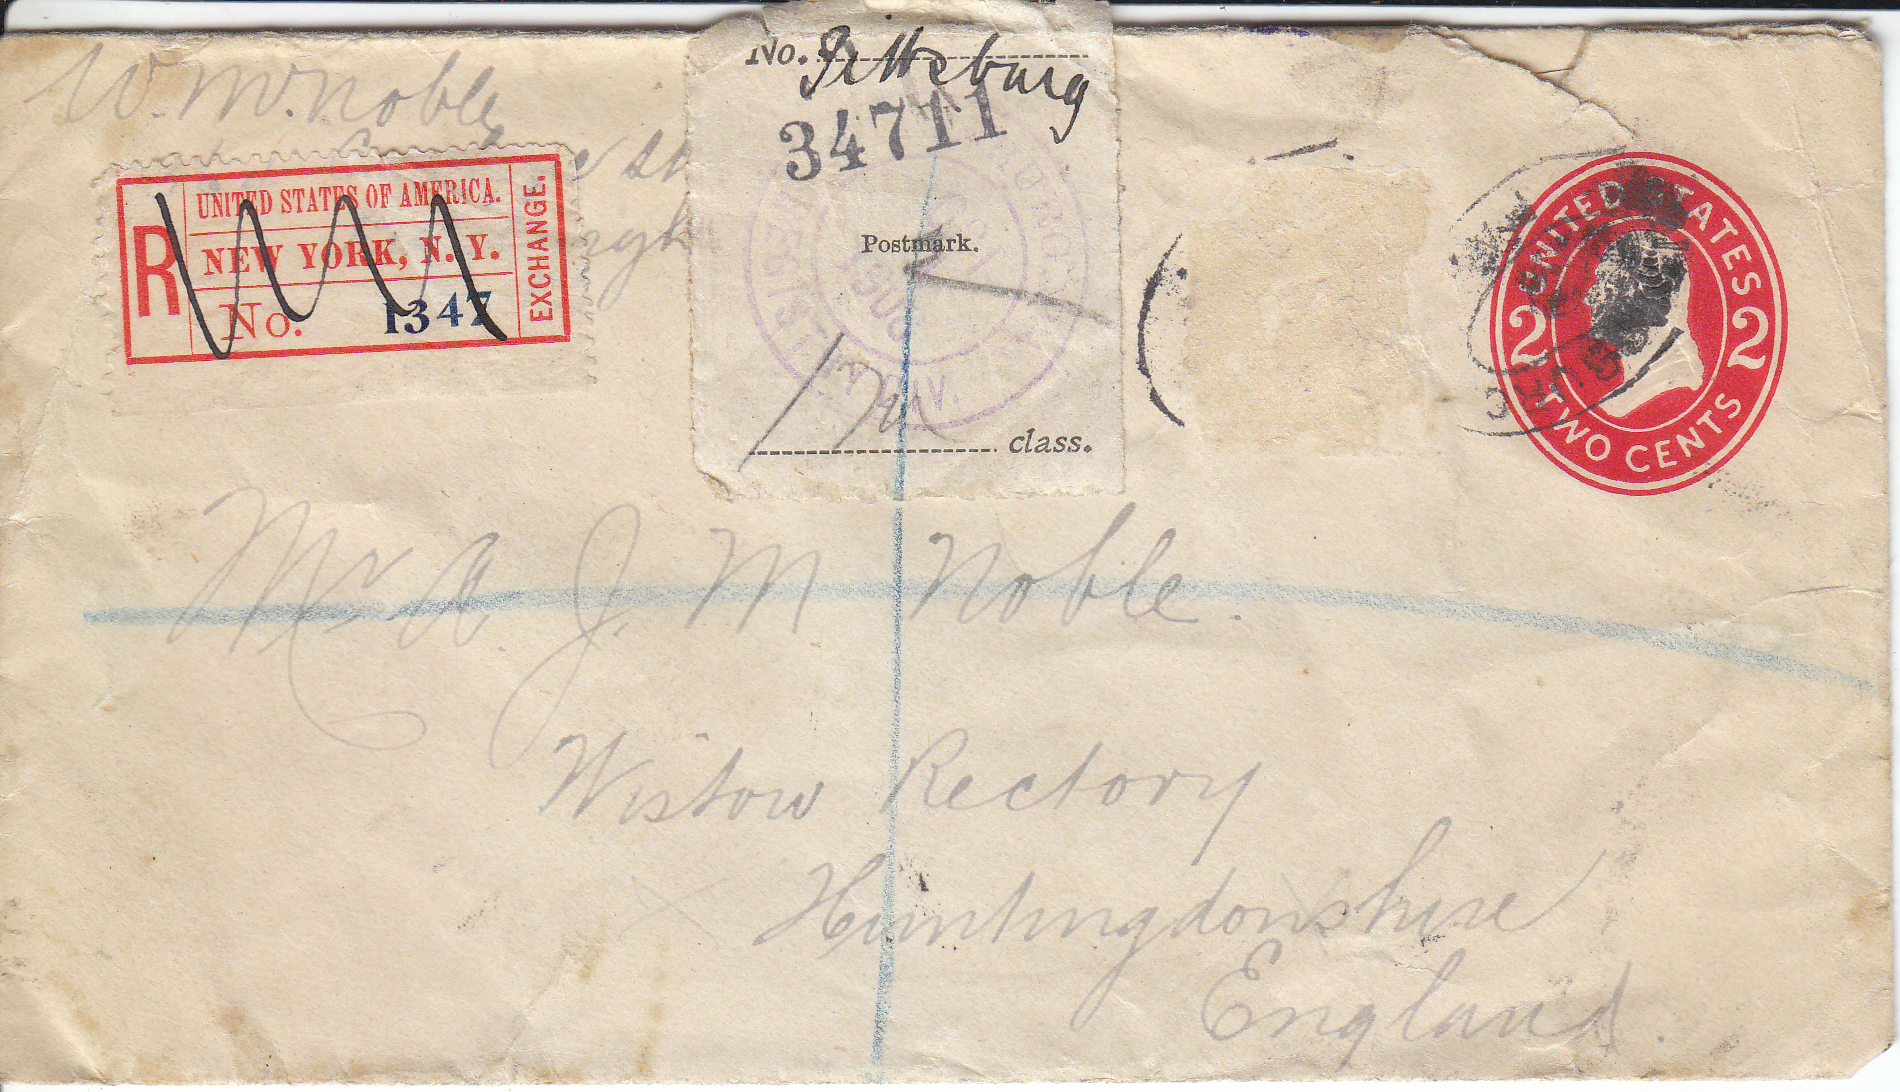 W. M. Noble
st
rgh
R
UNITED STATES OF AMERICA.
NEW YORK, N. Y.
No. 1347
EXCHANGE.
No. Pittsburg
34711
Postmark.
REGISTRY DIV.
class.
UNITED STATES
2 2
TWO CENTS
Mr A. J. M Noble.
Wistow Rectory
Huntingdonshire
England.